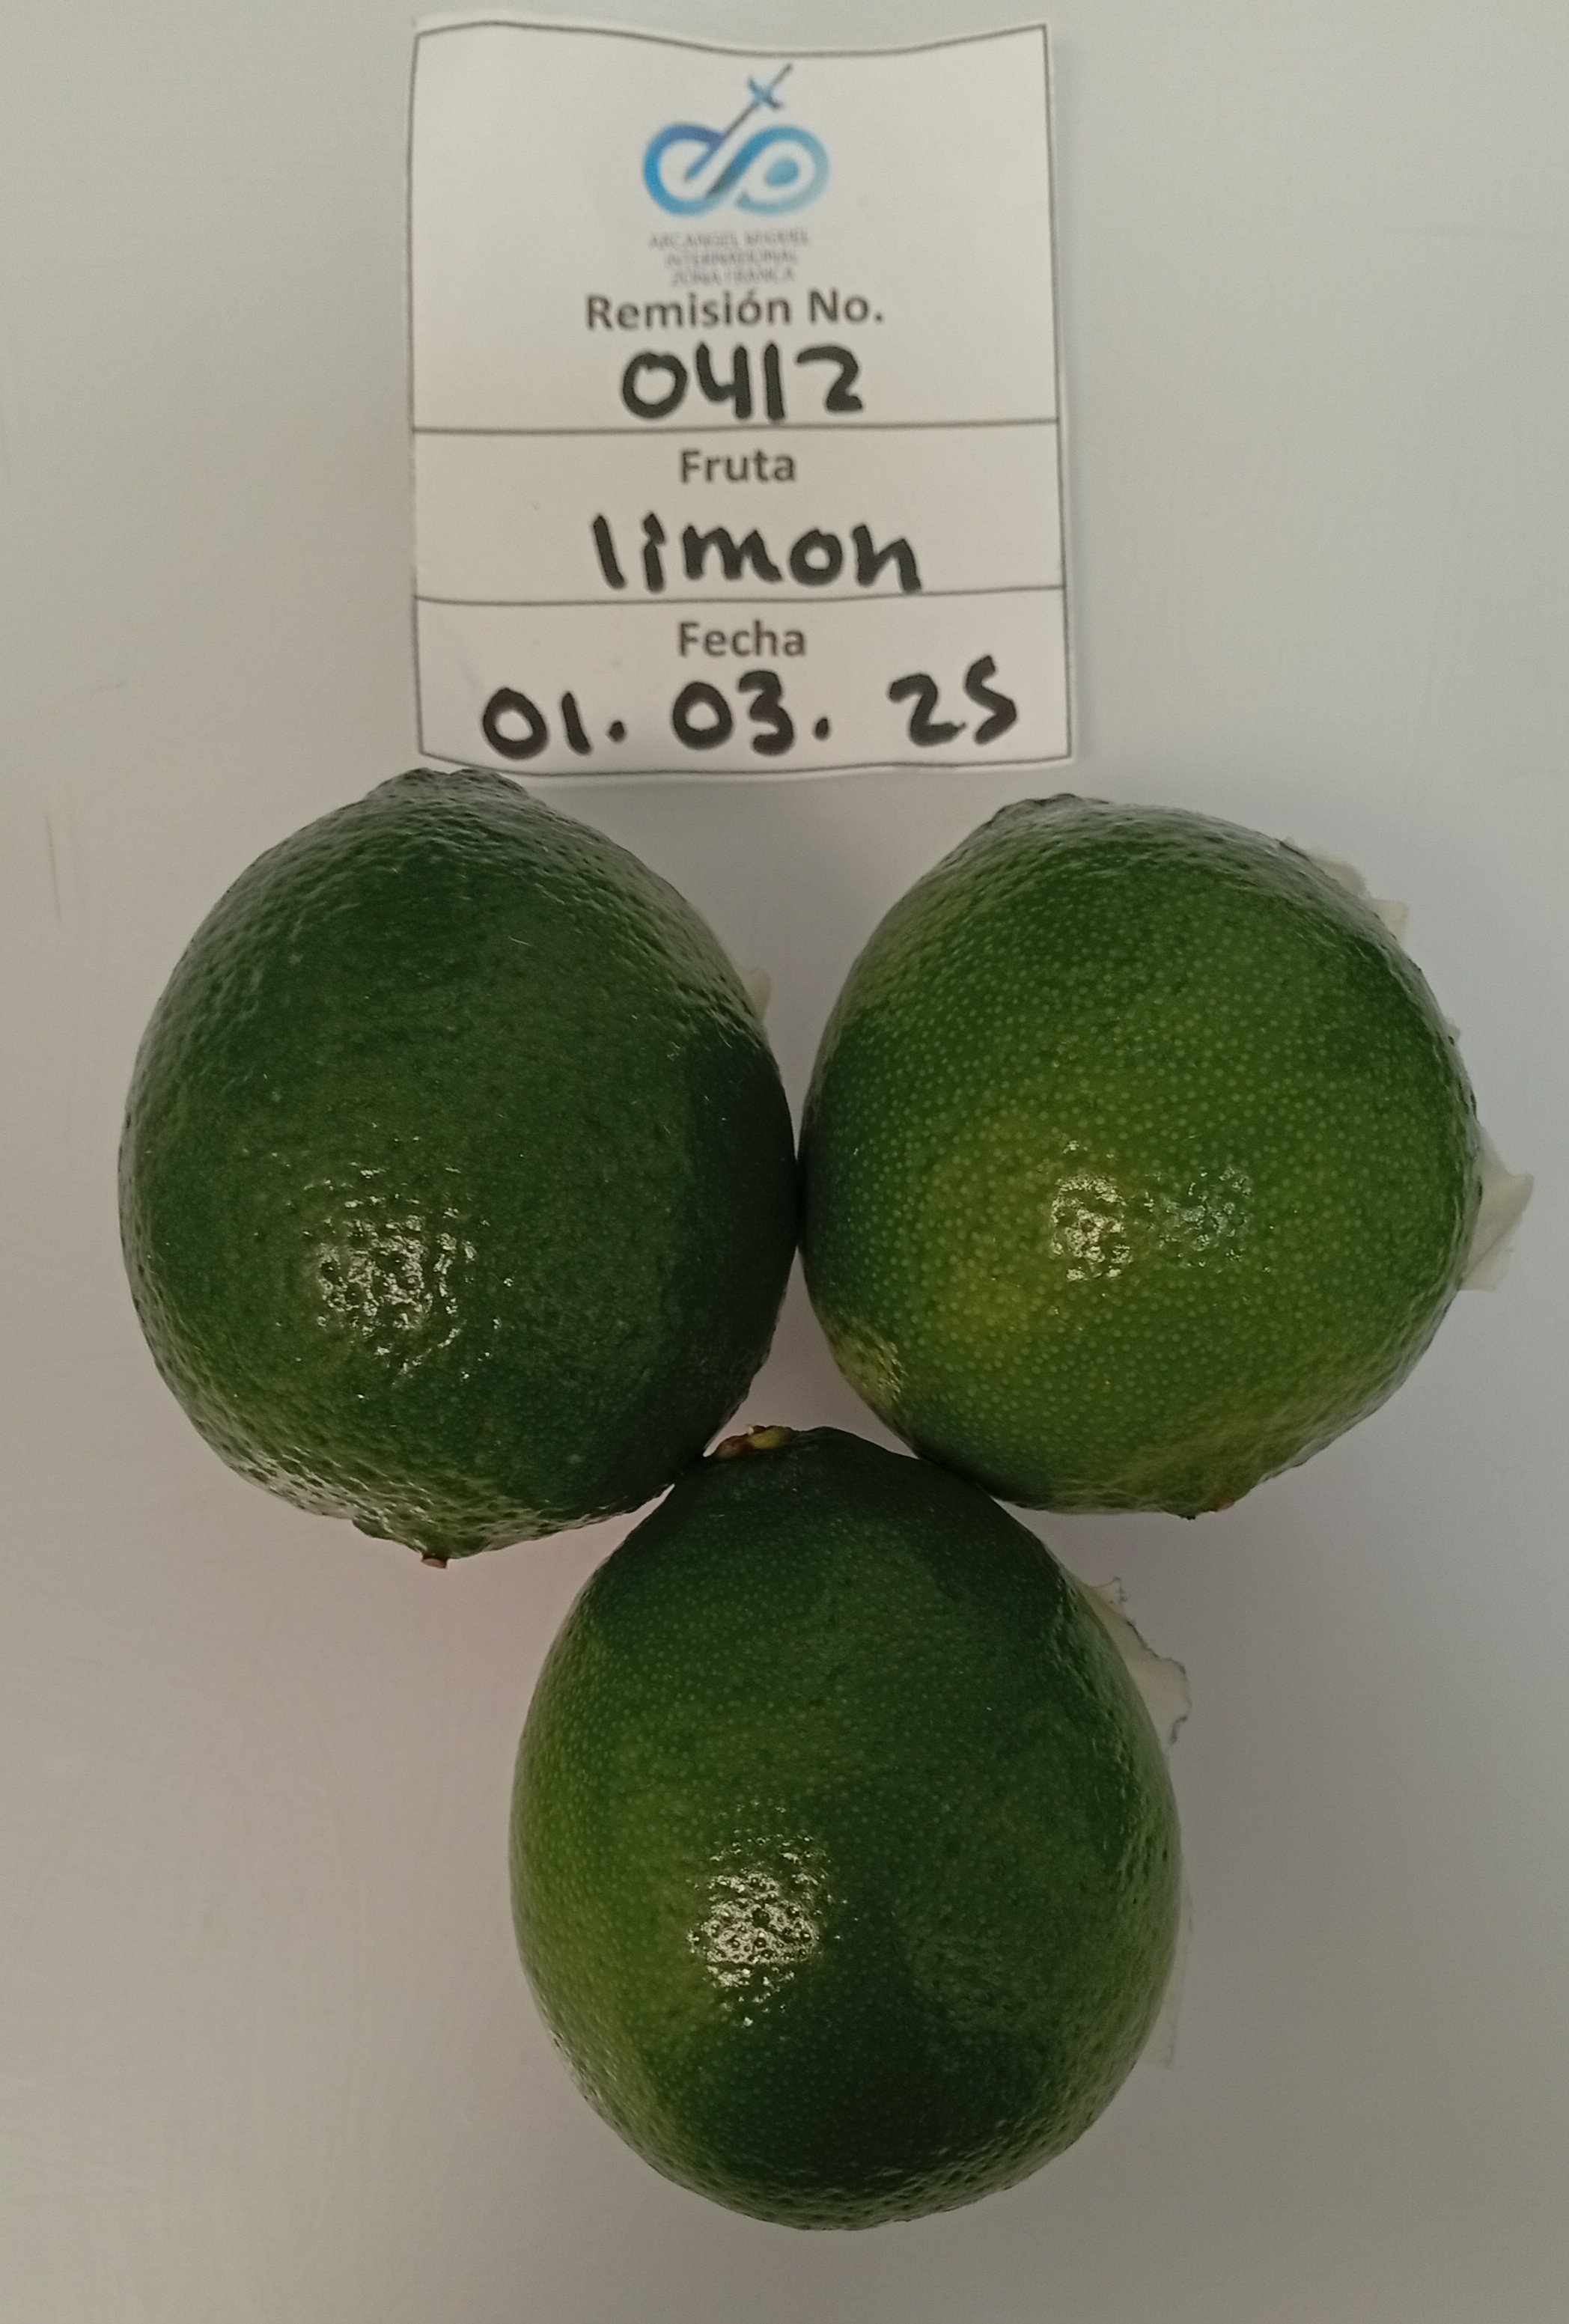 ARCANGEL MIGUEL
INTERNATIONAL
ZONA FRANCA
Remisión No.
0412
Fruta
limon
Fecha
01. 03. 25